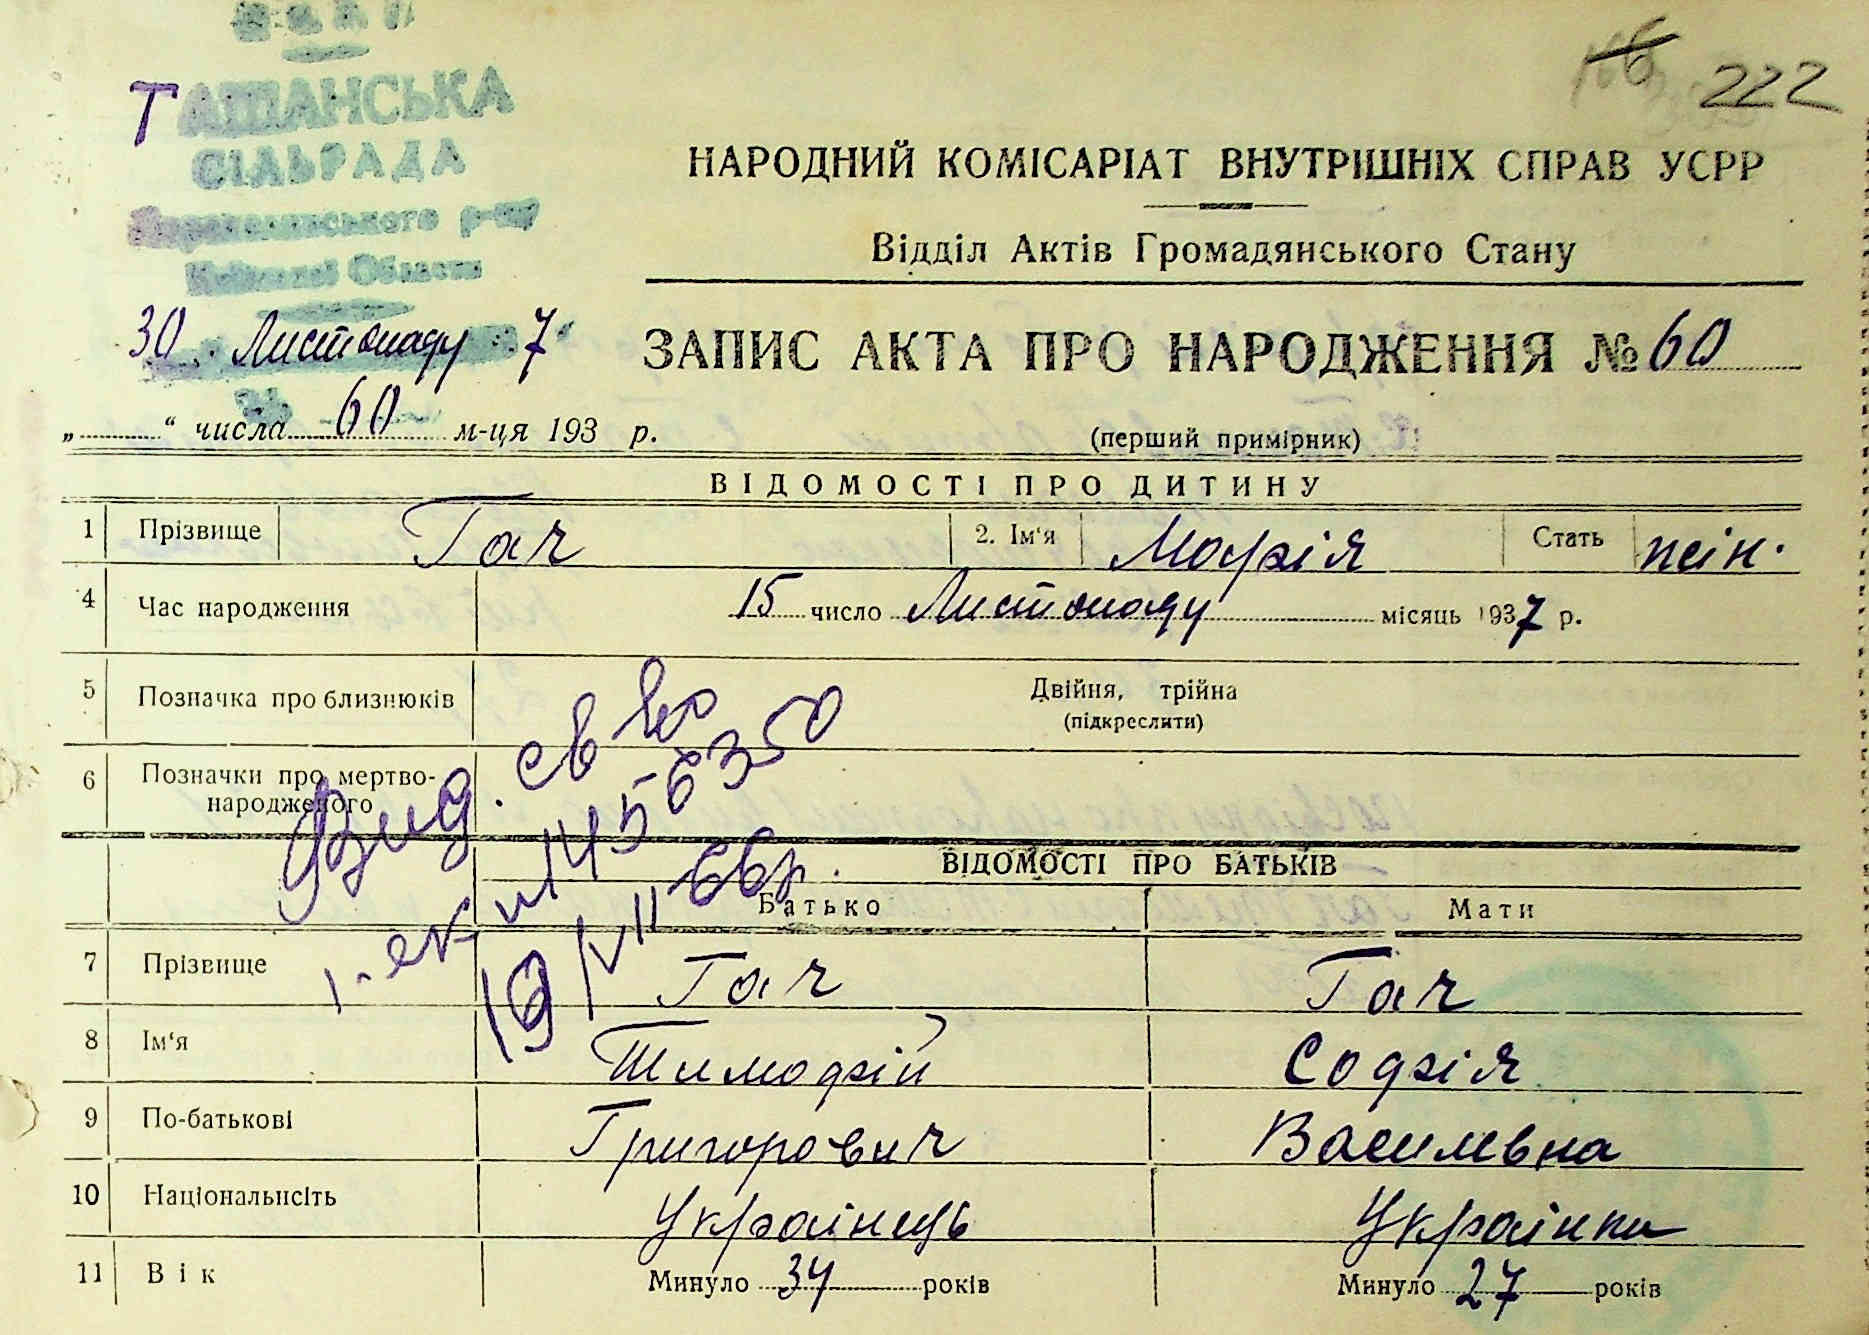 222
ТАШАНСЬКА
СІЛЬРАДА
р-ну
Київської Области
НАРОДНИЙ КОМІСАРІАТ ВНУТРІШНІХ СПРАВ УСРР
Відділ Актів Громадянського Стану
30 Листопаду 7
ЗАПИС АКТА ПРО НАРОДЖЕННЯ № 60
„ “ числа 60 м-ця 193 р.
(перший примірник)
ВІДОМОСТІ ПРО ДИТИНУ
1 Прізвище Гач 2. Ім‘я Марія Стать жін.
4 Час народження 15 число Листопаду місяць 1937 р.
5 Позначка про близнюків Двійня, трійна
(підкреслити)
6 Позначки про мертво-
народженого
Вид. св во
1456350
ВІДОМОСТІ ПРО БАТЬКІВ
Батько Мати
19/VII 66р.
7 Прізвище Гач Гач
8 Ім‘я Тимофій Софія
9 По-батькові Григорович Василевна
10 Національність Українець Українка
11 Вік Минуло 34 років Минуло 27 років